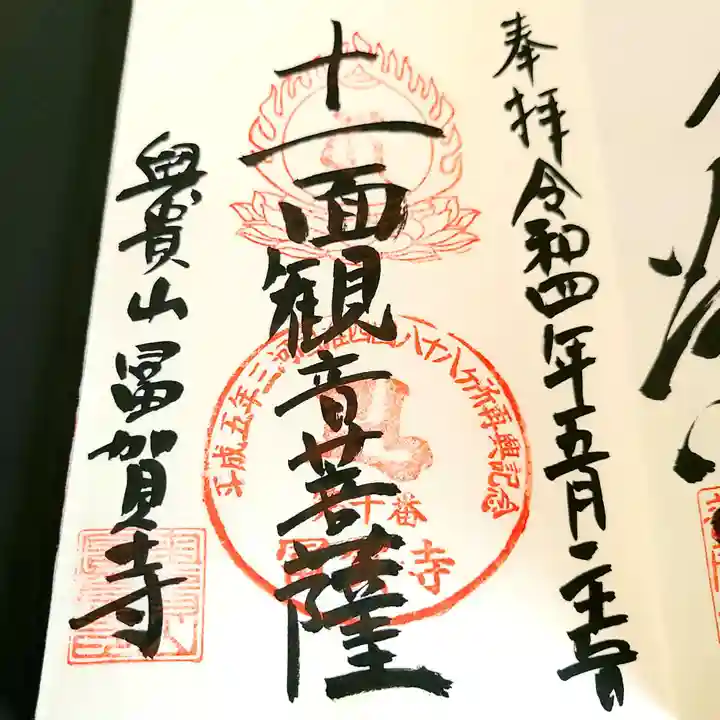 奉拝令和四年五月二十五日
十一面観音菩薩
平成五年三河 四国八十八ヶ所再興記念
十番
寺
與貴山冨賀寺